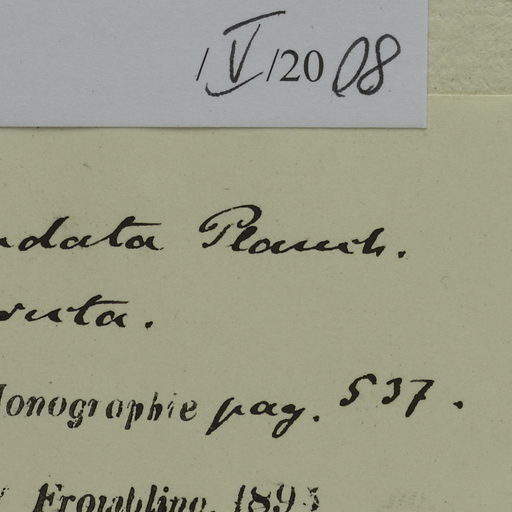 /V/2008
ndata Planch.
suta.
Monographie pag. 537.
Froembling, 1895